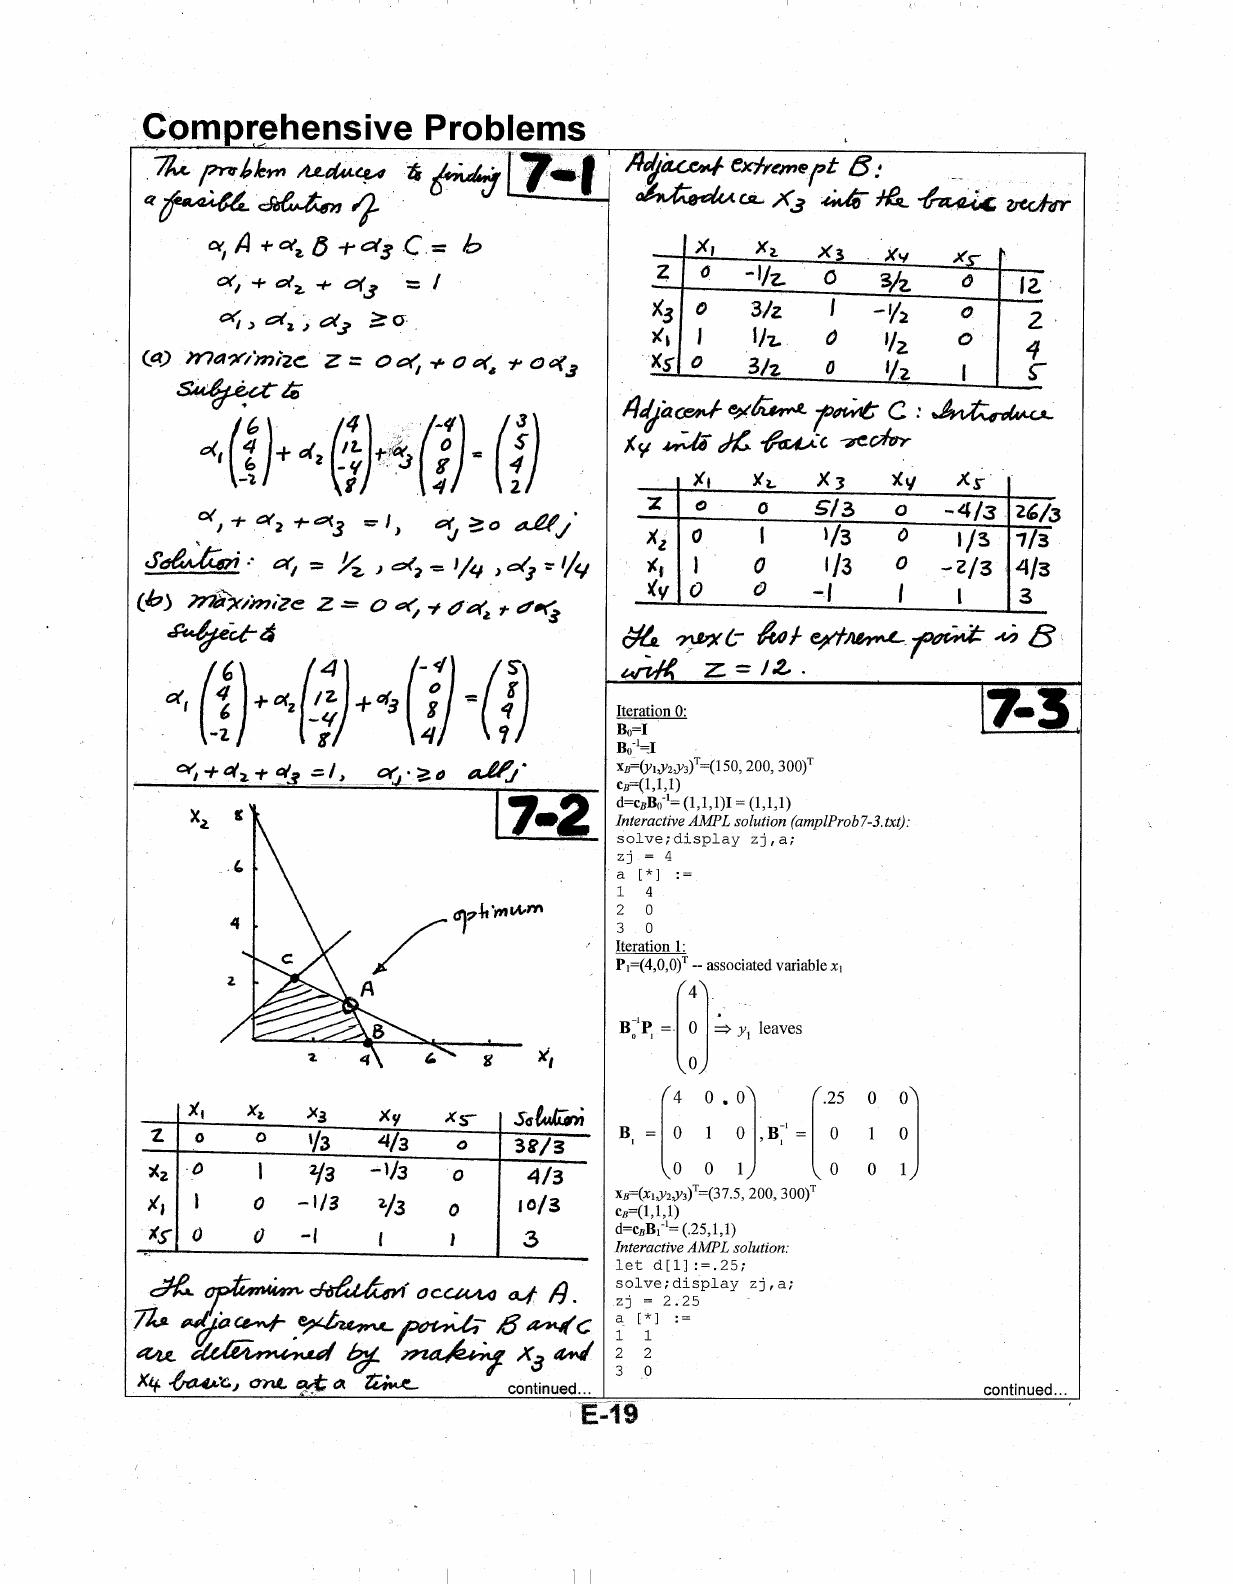 Comprehensive Problems
7-1
The problem reduces to finding
a feasible solution of
α₁ A + α₂ B + α₃ C = b
α₁ + α₂ + α₃ = 1
α₁, α₂, α₃ ≥ 0
(a) maximize Z = 0α₁ + 0α₂ + 0α₃
Subject to
α₁ (6 4 6 -2) + α₂ (4 12 -4 8) + α₃ (-4 0 8 4) = (3 5 4 2)
α₁ + α₂ + α₃ = 1, αⱼ ≥ 0 all j
Solution: α₁ = 1/2, α₂ = 1/4, α₃ = 1/4
(b) maximize Z = 0α₁ + 0α₂ + 0α₃
subject to
α₁ (6 4 6 -2) + α₂ (4 12 -4 8) + α₃ (-4 0 8 4) = (5 8 4 9)
α₁ + α₂ + α₃ = 1, αⱼ ≥ 0 all j
7-2
X₂ 8
6
4
optimum
C
2
A
B
2 4 6 8 X₁
X₁ X₂ X₃ X₄ X₅ Solution
Z 0 0 1/3 4/3 0 38/3
X₂ 0 1 2/3 -1/3 0 4/3
X₁ 1 0 -1/3 2/3 0 10/3
X₅ 0 0 -1 1 1 3
The optimum solution occurs at A.
The adjacent extreme points B and C
are determined by making X₃ and
X₄ basic, one at a time
continued...
Adjacent extreme pt B:
Introduce X₃ into the basic vector
X₁ X₂ X₃ X₄ X₅
Z 0 -1/2 0 3/2 0 12
X₃ 0 3/2 1 -1/2 0 2
X₁ 1 1/2 0 1/2 0 4
X₅ 0 3/2 0 1/2 1 5
Adjacent extreme point C: Introduce
X₄ into the basic vector
X₁ X₂ X₃ X₄ X₅
Z 0 0 5/3 0 -4/3 26/3
X₂ 0 1 1/3 0 1/3 7/3
X₁ 1 0 1/3 0 -2/3 4/3
X₄ 0 0 -1 1 1 3
The next best extreme point is B
with Z = 12.
7-3
Iteration 0:
B₀=I
B₀⁻¹=I
x_B=(y₁,y₂,y₃)ᵀ=(150, 200, 300)ᵀ
c_B=(1,1,1)
d=c_B B₀⁻¹= (1,1,1)I = (1,1,1)
Interactive AMPL solution (amplProb7-3.txt):
solve;display zj,a;
zj = 4
a [*] :=
1 4
2 0
3 0
Iteration 1:
P₁=(4,0,0)ᵀ -- associated variable x₁
B₀⁻¹P₁ = (4 0 0) ⇒ y₁ leaves
B₁ = (4 0 0
0 1 0
0 0 1), B₁⁻¹ = (.25 0 0
0 1 0
0 0 1)
x_B=(x₁,y₂,y₃)ᵀ=(37.5, 200, 300)ᵀ
c_B=(1,1,1)
d=c_B B₁⁻¹= (.25,1,1)
Interactive AMPL solution:
let d[1]:=.25;
solve;display zj,a;
zj = 2.25
a [*] :=
1 1
2 2
3 0
continued...
E-19